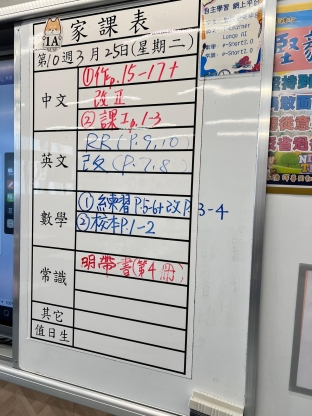 家課表
1A
第10週3月25日(星期二)
中文
①作p.15-17+
改正
②課工p.1-3
英文
RR(P.9,10)
改(P.7,8)
數學
①練習P.5-6+改P.3-4
②校本P.1-2
常識
明帶書(第4冊)
其它
值日生
自主學習網上平台
e-Smart2.0
e-Smart2.0